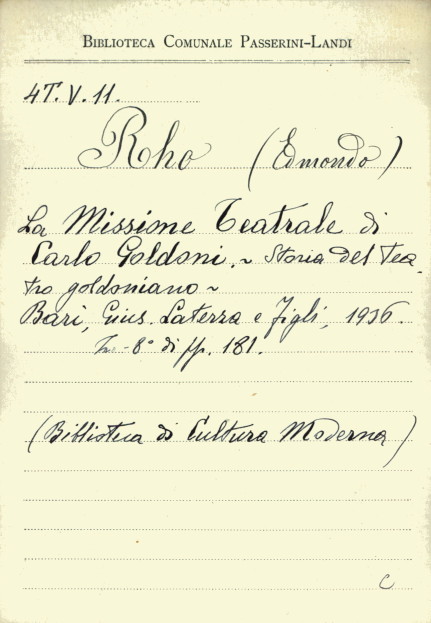 BIBLIOTECA COMUNALE PASSERINI-LANDI
4T. V. 11.
Rho (Edmondo)
La Missione Teatrale di
Carlo Goldoni. ~ Storia del Tea-
tro goldoniano ~
Bari, Gius. Laterza e Figli, 1936.
In-8° di pp. 181.
(Biblioteca di Cultura Moderna)
C